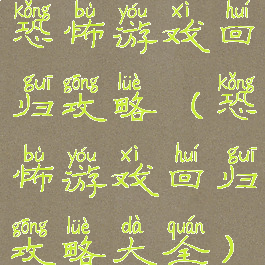 kǒng bù yóu xì huí
恐怖游戏回
guī gōng lüè kǒng
归攻略（恐
bù yóu xì huí guī
怖游戏回归
gōng lüè dà quán
攻略大全）